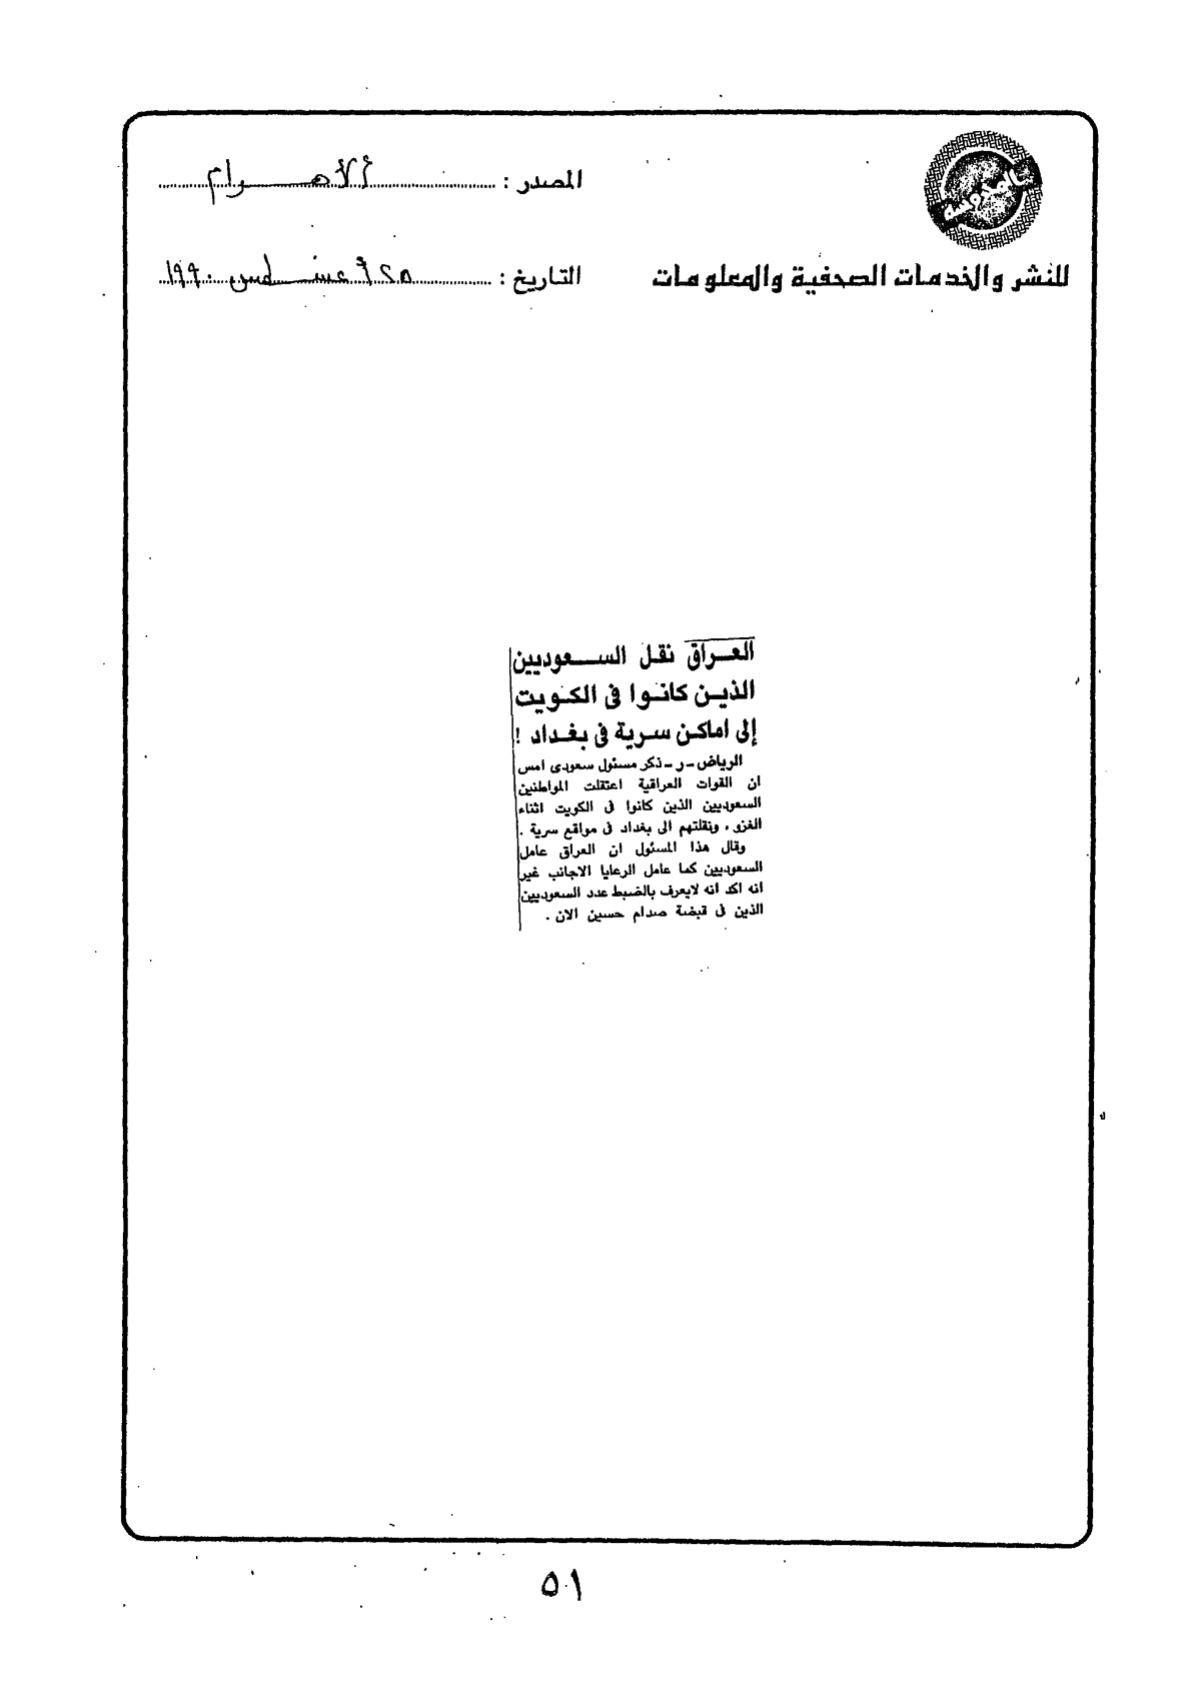 المصدر : الأهـــرام
للنشر والخدمات الصحفية والمعلومات
التاريخ : ٢٥ أغسطس ١٩٩٠
العـراق نقـل الســعوديين
الذيـن كانـوا فى الكـويت
إلى اماكـن سـرية فى بغـداد !
الرياض ـ ر ـ ذكر مسئول سعودى امس
ان القوات العراقية اعتقلت المواطنين
السعوديين الذين كانوا فى الكويت اثناء
الغزو ، ونقلتهم الى بغداد فى مواقع سرية .
وقال هذا المسئول ان العراق عامل
السعوديين كما عامل الرعايا الاجانب غير
انه اكد انه لايعرف بالضبط عدد السعوديين
الذين فى قبضة صدام حسين الان .
٥١